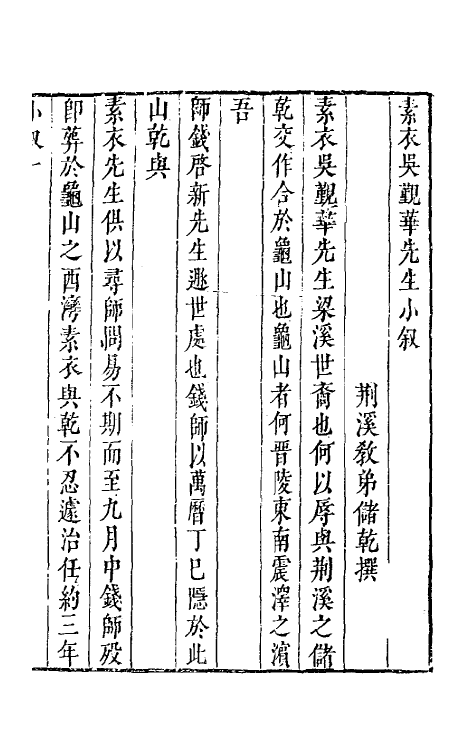 素衣吳覲華先生小叙
荆溪敎弟儲乾撰
素衣吳覲華先生梁溪世裔也何以辱與荆溪之儲
乾交作合於龜山也龜山者何晋陵東南震澤之濵
吾
師錢啓新先生遯世處也錢師以萬曆丁巳隱於此
山乾與
素衣先生俱以尋師問易不期而至九月中錢師殁
即葬於龜山之西灣素衣與乾不忍遽治任約三年
小叙一